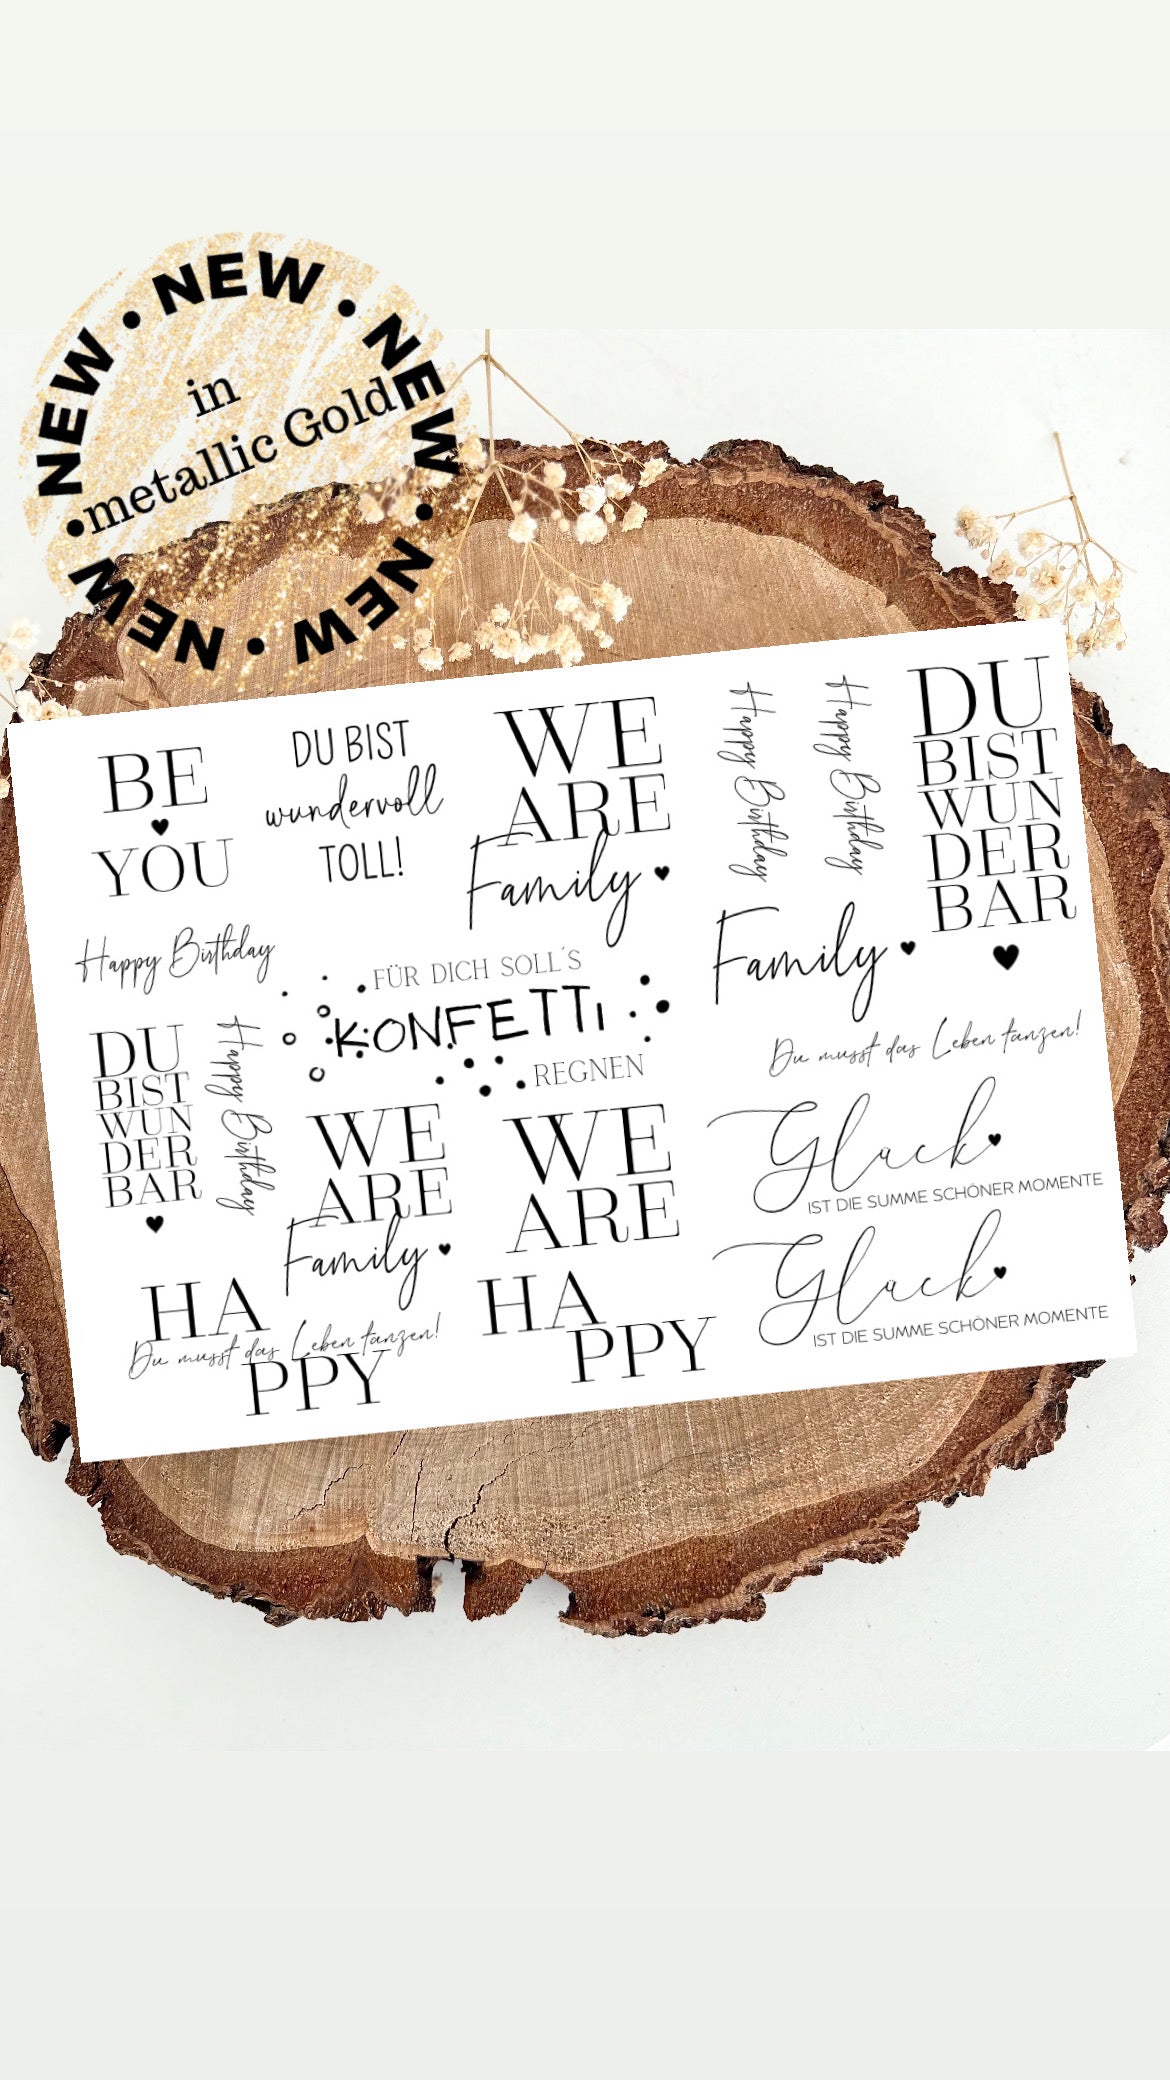 NEW • NEW • NEW • NEW • NEW • NEW •
in
metallic Gold
BE
YOU
DU BIST
wundervoll
TOLL!
WE
ARE
Family
Happy Birthday
Happy Birthday
DU
BIST
WUN
DER
BAR
Happy Birthday
FÜR DICH SOLL´S
KONFETTI
REGNEN
Family
Du musst das Leben tanzen!
DU
BIST
WUN
DER
BAR
Happy Birthday
WE
ARE
Family
WE
ARE
Glück
IST DIE SUMME SCHÖNER MOMENTE
Glück
IST DIE SUMME SCHÖNER MOMENTE
HA
Du musst das Leben tanzen!
PPY
HA
PPY